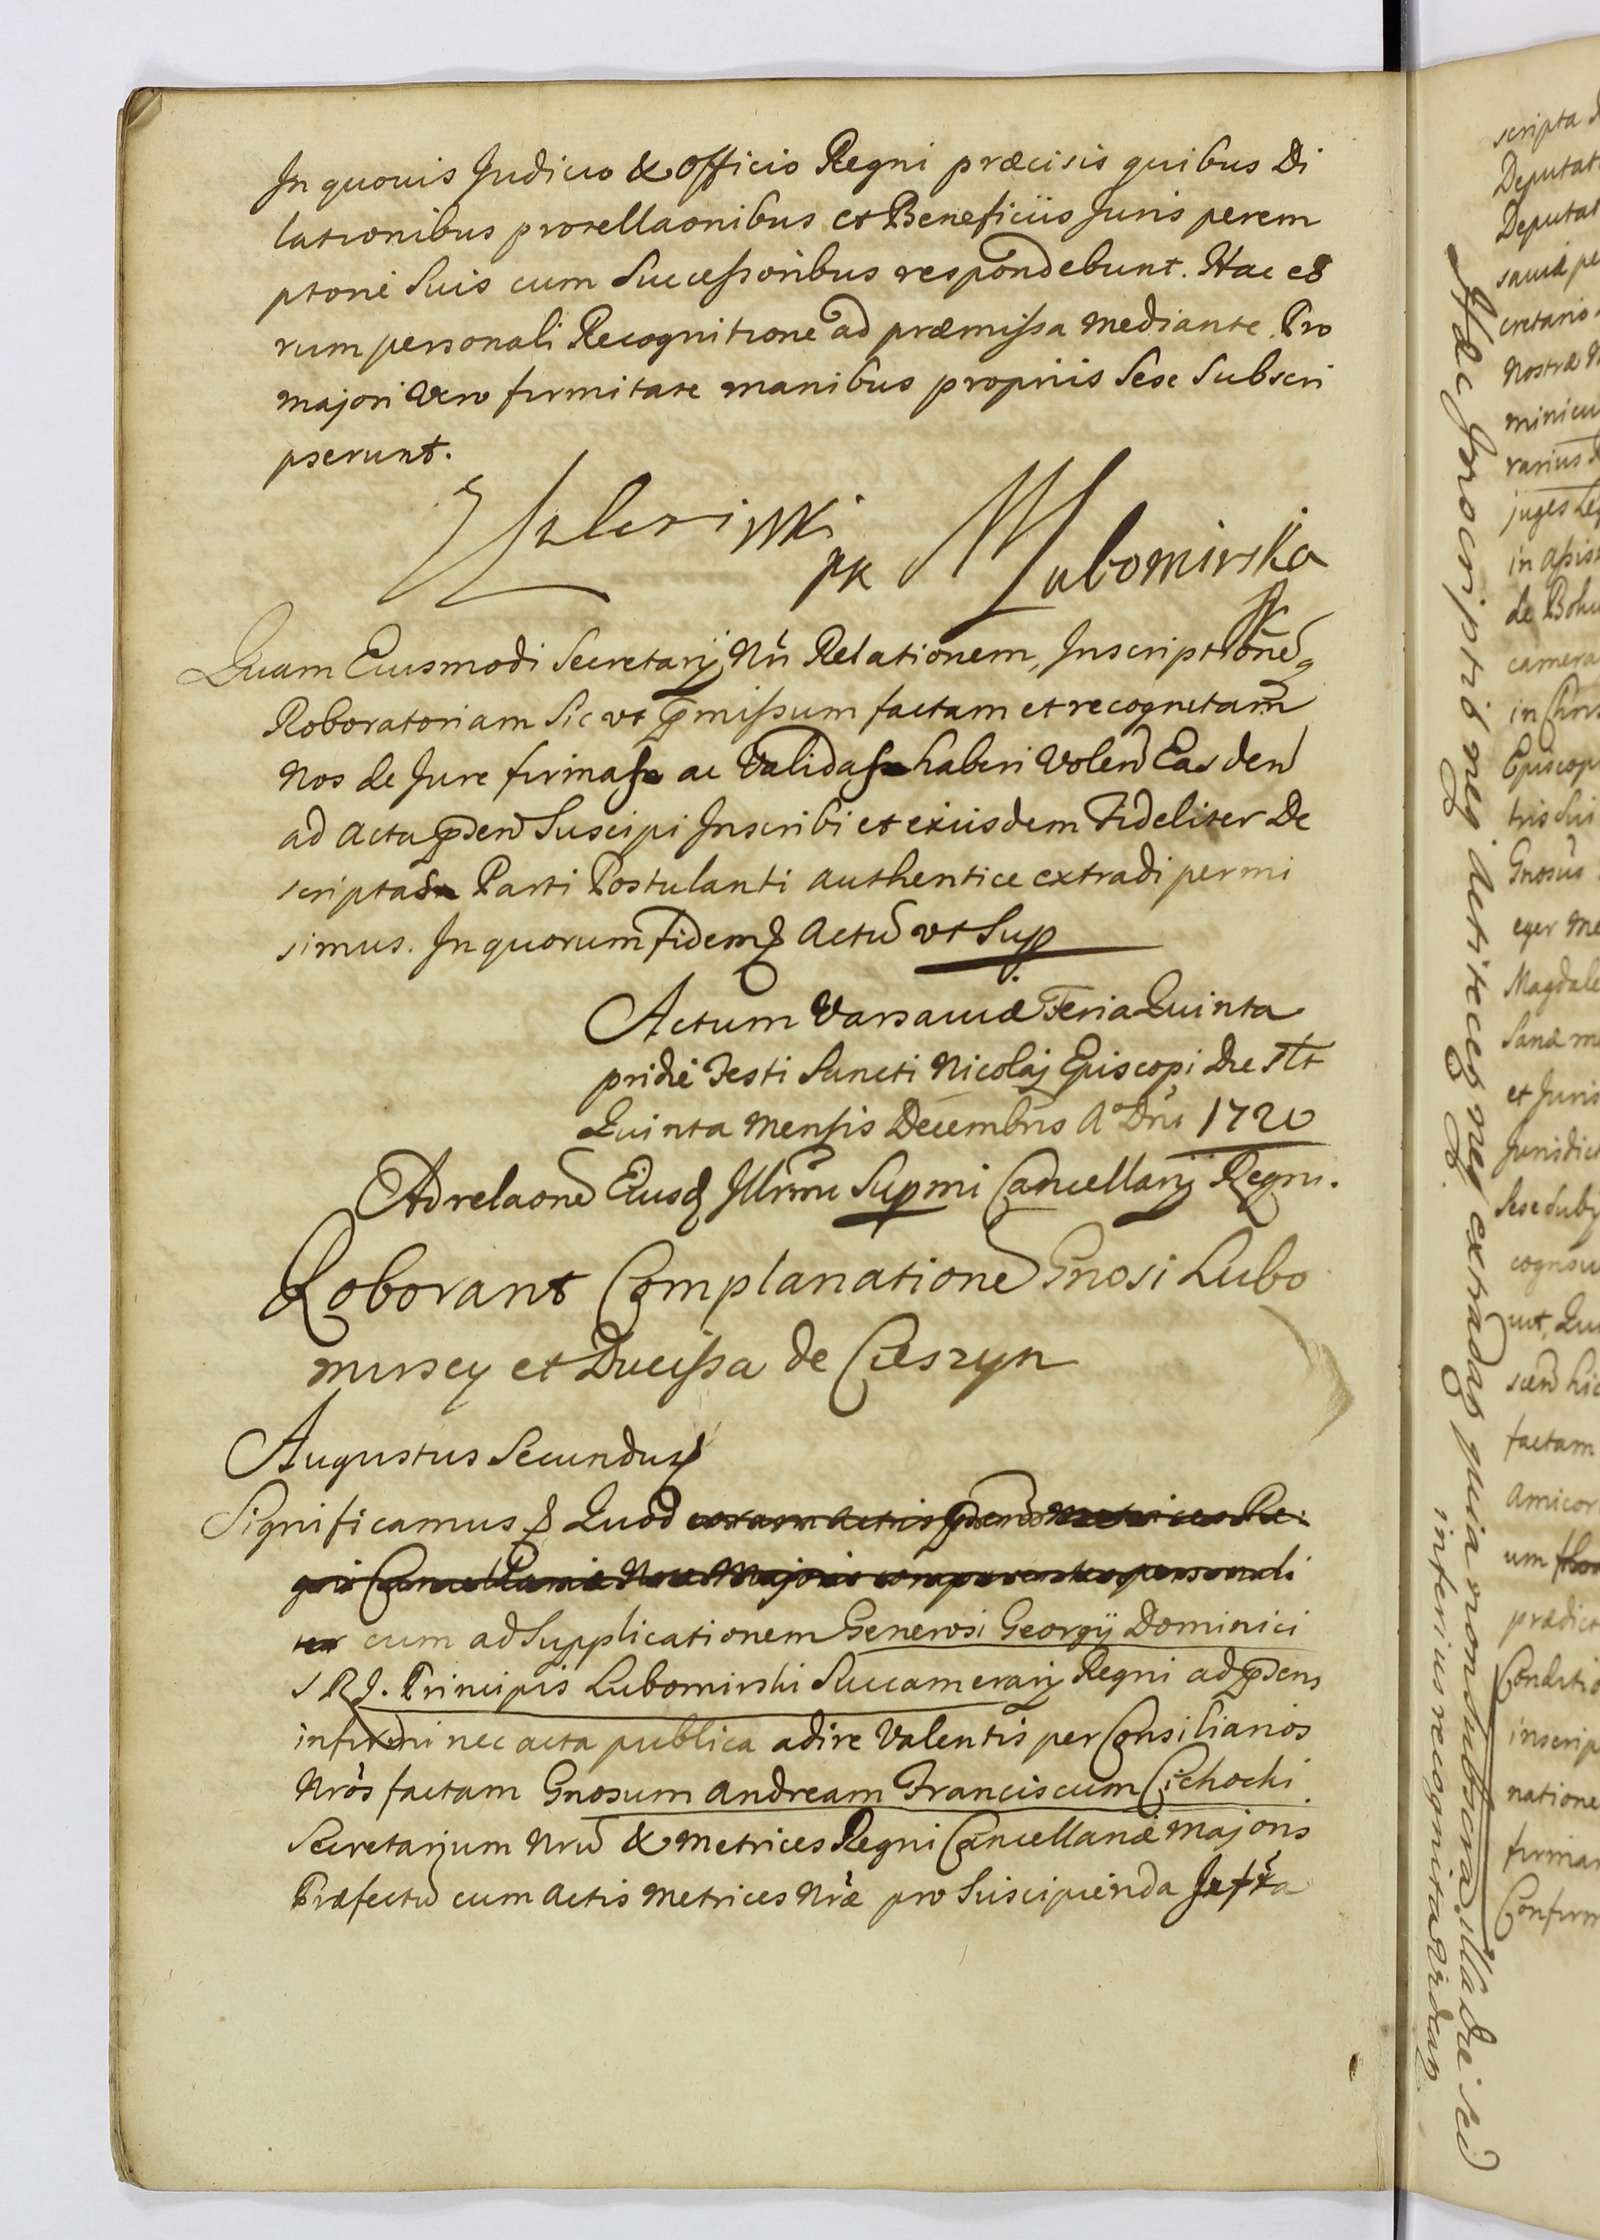 In quovis Judicio & Officio Regni præcisis quibus Di
lationibus prorellaonibus et Beneficiis Juris perem
ptorie Suis cum Successoribus respondebunt. Hac eo
rum personali Recognitione ad præmissa mediante. Pro
majori Vero firmitate manibus propriis Sese Subscri
pserunt.
pk Lubomirska
Quam Eiusmodi Secretarij Nri Relationem, Inscriptione
Roboratoriam Sic vt pmissum factam et recognitam
Nos de Jure firmas ac Validas haberi Volen Easden
ad Acta psen Suscipi Inscribi et exiisdem Fideliter De
scriptas Parti Postulanti authentice extradi permi
simus. In quorum fidem Actu vt Sup
Actum Varsaviæ Feria Quinta
pridie Festi Sancti Nicolaj Episcopi Die Slt
Quinta Mensis Decembris Ao Dni 1720
Ad relaone Eiusd Illrmi Supmi Cancellarij Regni.
Roborant Complanatione Gnosi Lubo
mirscy et Ducissa de Cieszyn
Augustus Secundus
Significamus Quod coram Actis psen Metrices Re
gni Cancellariæ Nræ Majoris comparentes personali
ter cum ad Supplicationem Generosi Georgij Dominici
S R J. Principis Lubomirski Succamerarij Regni ad psens
infirmi nec acta publica adire Valentis per Consiliarios
Nros factam Gnosum Andream Franciscum Cichocki
Secretarium Nru & Metrices Regni Cancellariæ Majoris
Præfectu cum Actis Metrices Nræ pro Suscipienda
Hæ Inscriptiones actitecz neq extradaz quia non subscra. illa die sed
inferius recognita videaz
scripta
Deputat
Deputat
saviæ pe
cretario
Nostræ
minicu
rarius
juges
in
de Bohu
camera
in Chris
Episcop
tris sui
Gnosus
eger me
Magdale
Sanæ me
et Juris
Jurisdict
Sese suby
cognov
scen hic
factam
Amicor
um
prædict
Conditio
inscrip
natione
firmar
Confirm